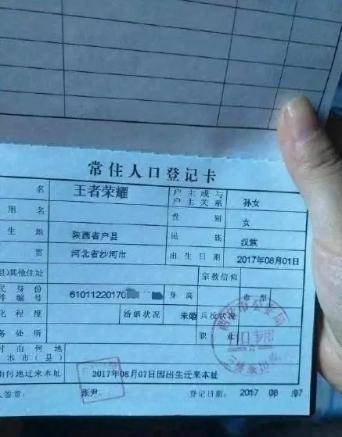 常住人口登记卡
名 王者荣耀 户主或与户主关系 孙女
用名 性别 女
生地 陕西省户县 民族 汉族
贯 河北省沙河市 出生日期 2017年08月01日
县)其他住址 宗教信仰
民身份件编号 61011220170 身高 血型
化程度 婚姻状况 未婚 兵役状况
务处所 职业
时由何地来本市(县)
由何地迁来本址 2017年08月07日因出生迁来本址
人签章: 张尹 登记日期: 2017 08 07